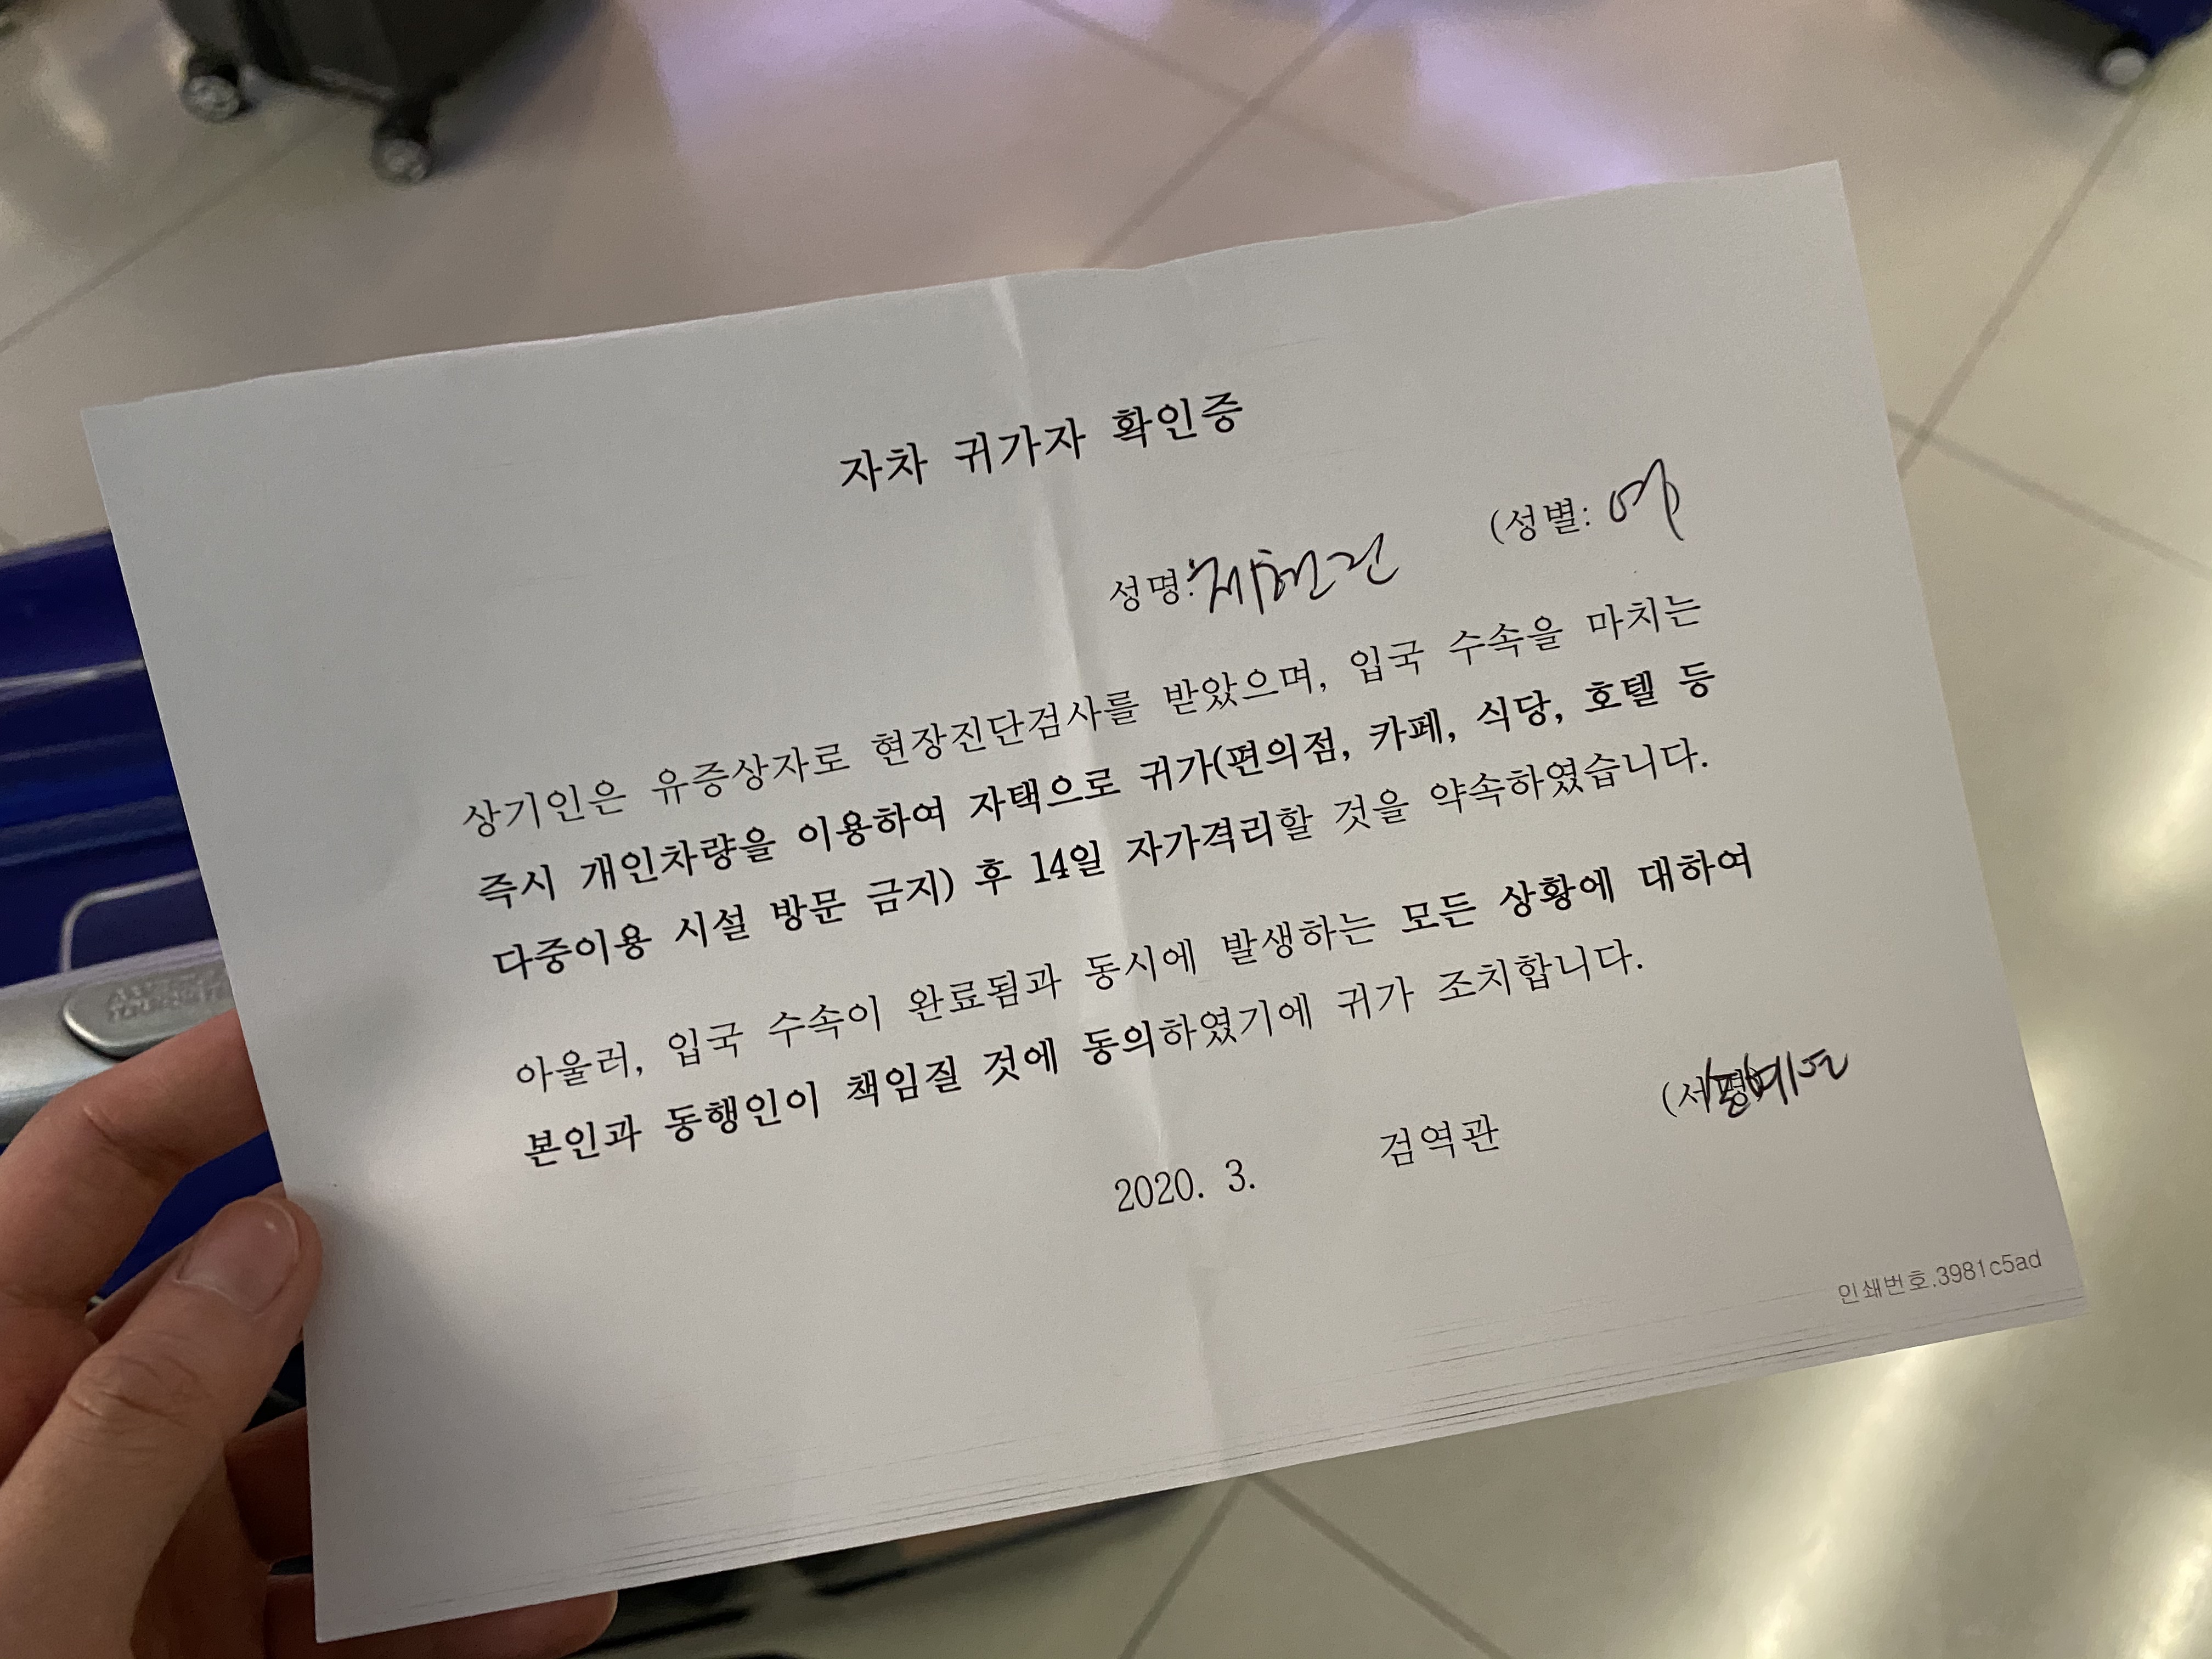 자차 귀가자 확인증
성명: (성별: 여
상기인은 유증상자로 현장진단검사를 받았으며, 입국 수속을 마치는
즉시 개인차량을 이용하여 자택으로 귀가(편의점, 카페, 식당, 호텔 등
다중이용 시설 방문 금지) 후 14일 자가격리할 것을 약속하였습니다.
아울러, 입국 수속이 완료됨과 동시에 발생하는 모든 상황에 대하여
본인과 동행인이 책임질 것에 동의하였기에 귀가 조치합니다.
2020. 3. 검역관 (서명)
인쇄번호.3981c5ad